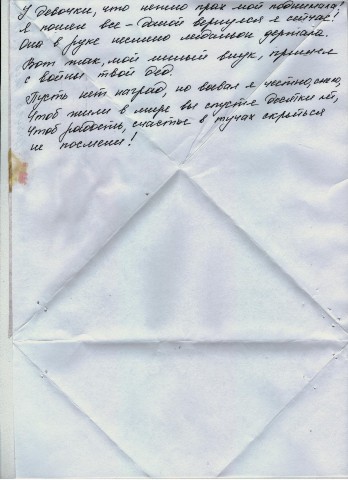 У девочки, что нежно прах мой поднимала!
Я понял все - домой вернулся я сейчас!
Она в руке медальон держала.
Вот так, мой милый внук, пришел
с войны твой дед.
Пусть нет наград, но воевал я честно, смело,
Чтоб жили в мире вы спустя десятки лет,
Чтоб радость, счастье в тучах скрыться
не посмели!